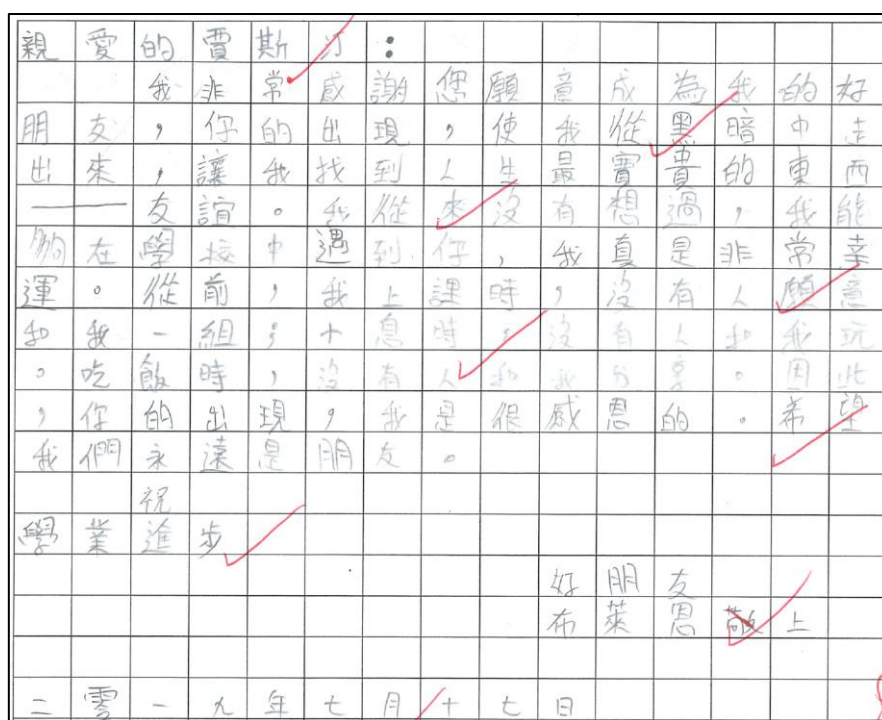 親愛的賈斯汀：
我非常感謝您願意成為我的好
朋友，你的出現，使我從黑暗中走
出來，讓我找到人生最寶貴的東西
——友誼。我從來沒有想過，我能
夠在學校中遇到你，我真是非常幸
運。從前，我上課時，沒有人願意
和我一組；小息時，沒有人和我玩
。吃飯時，沒有人和我分享。因此
，你的出現，我是很感恩的。希望
我們永遠是朋友。
祝
學業進步
好朋友
布萊恩敬上
二零一九年七月十七日